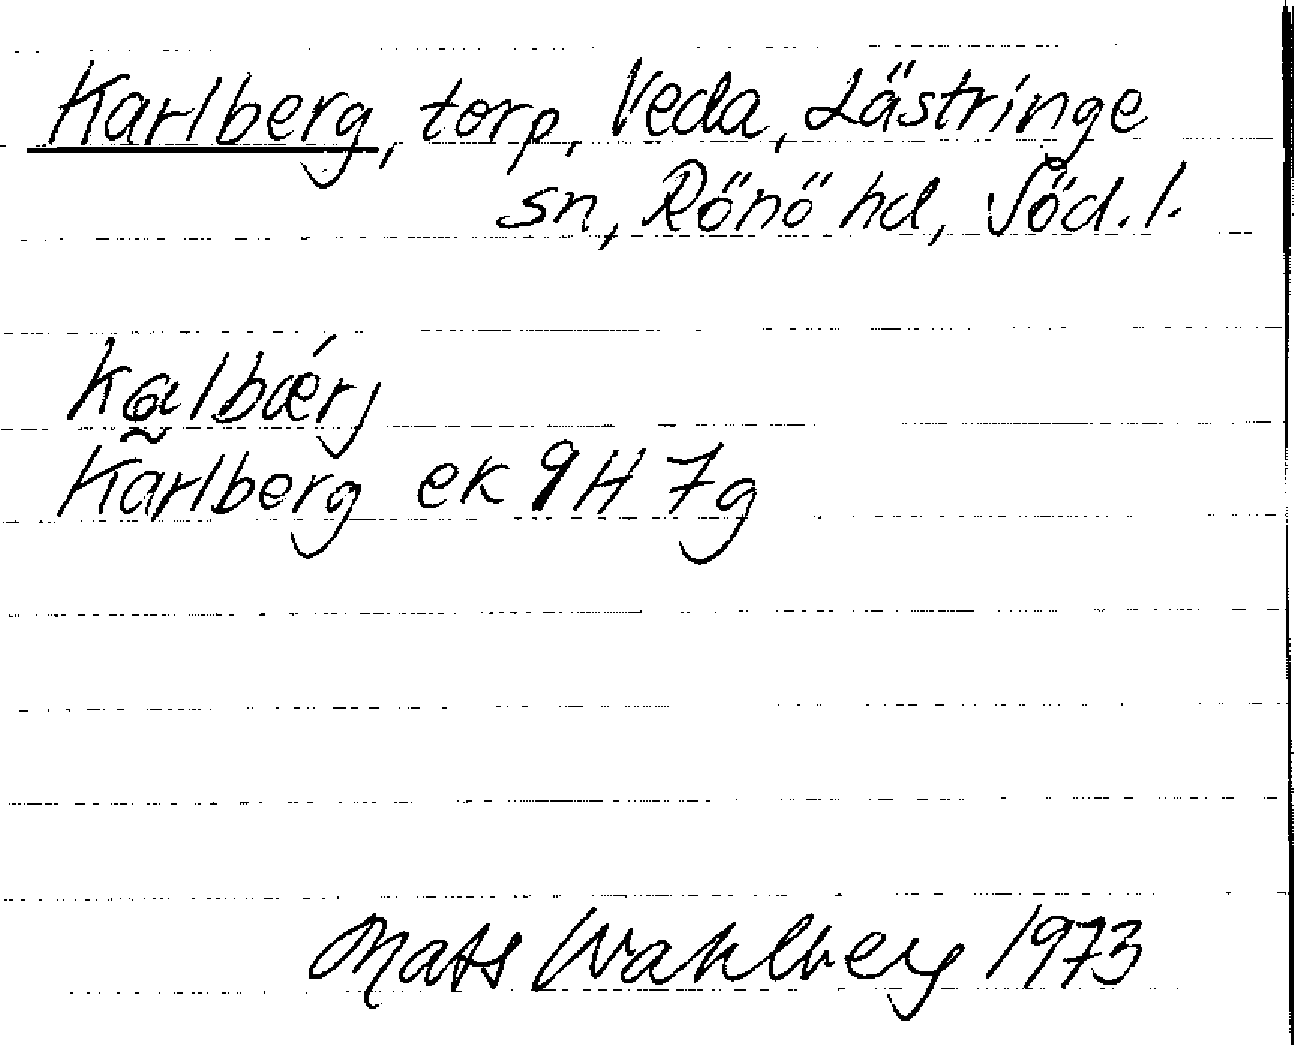 Karlberg, torp, Veda, Lästringe
sn, Rönö hd, Söd. l.
kɑ̰lbǽrj
Karlberg ek 9H 7g
Mats Wahlberg 1973